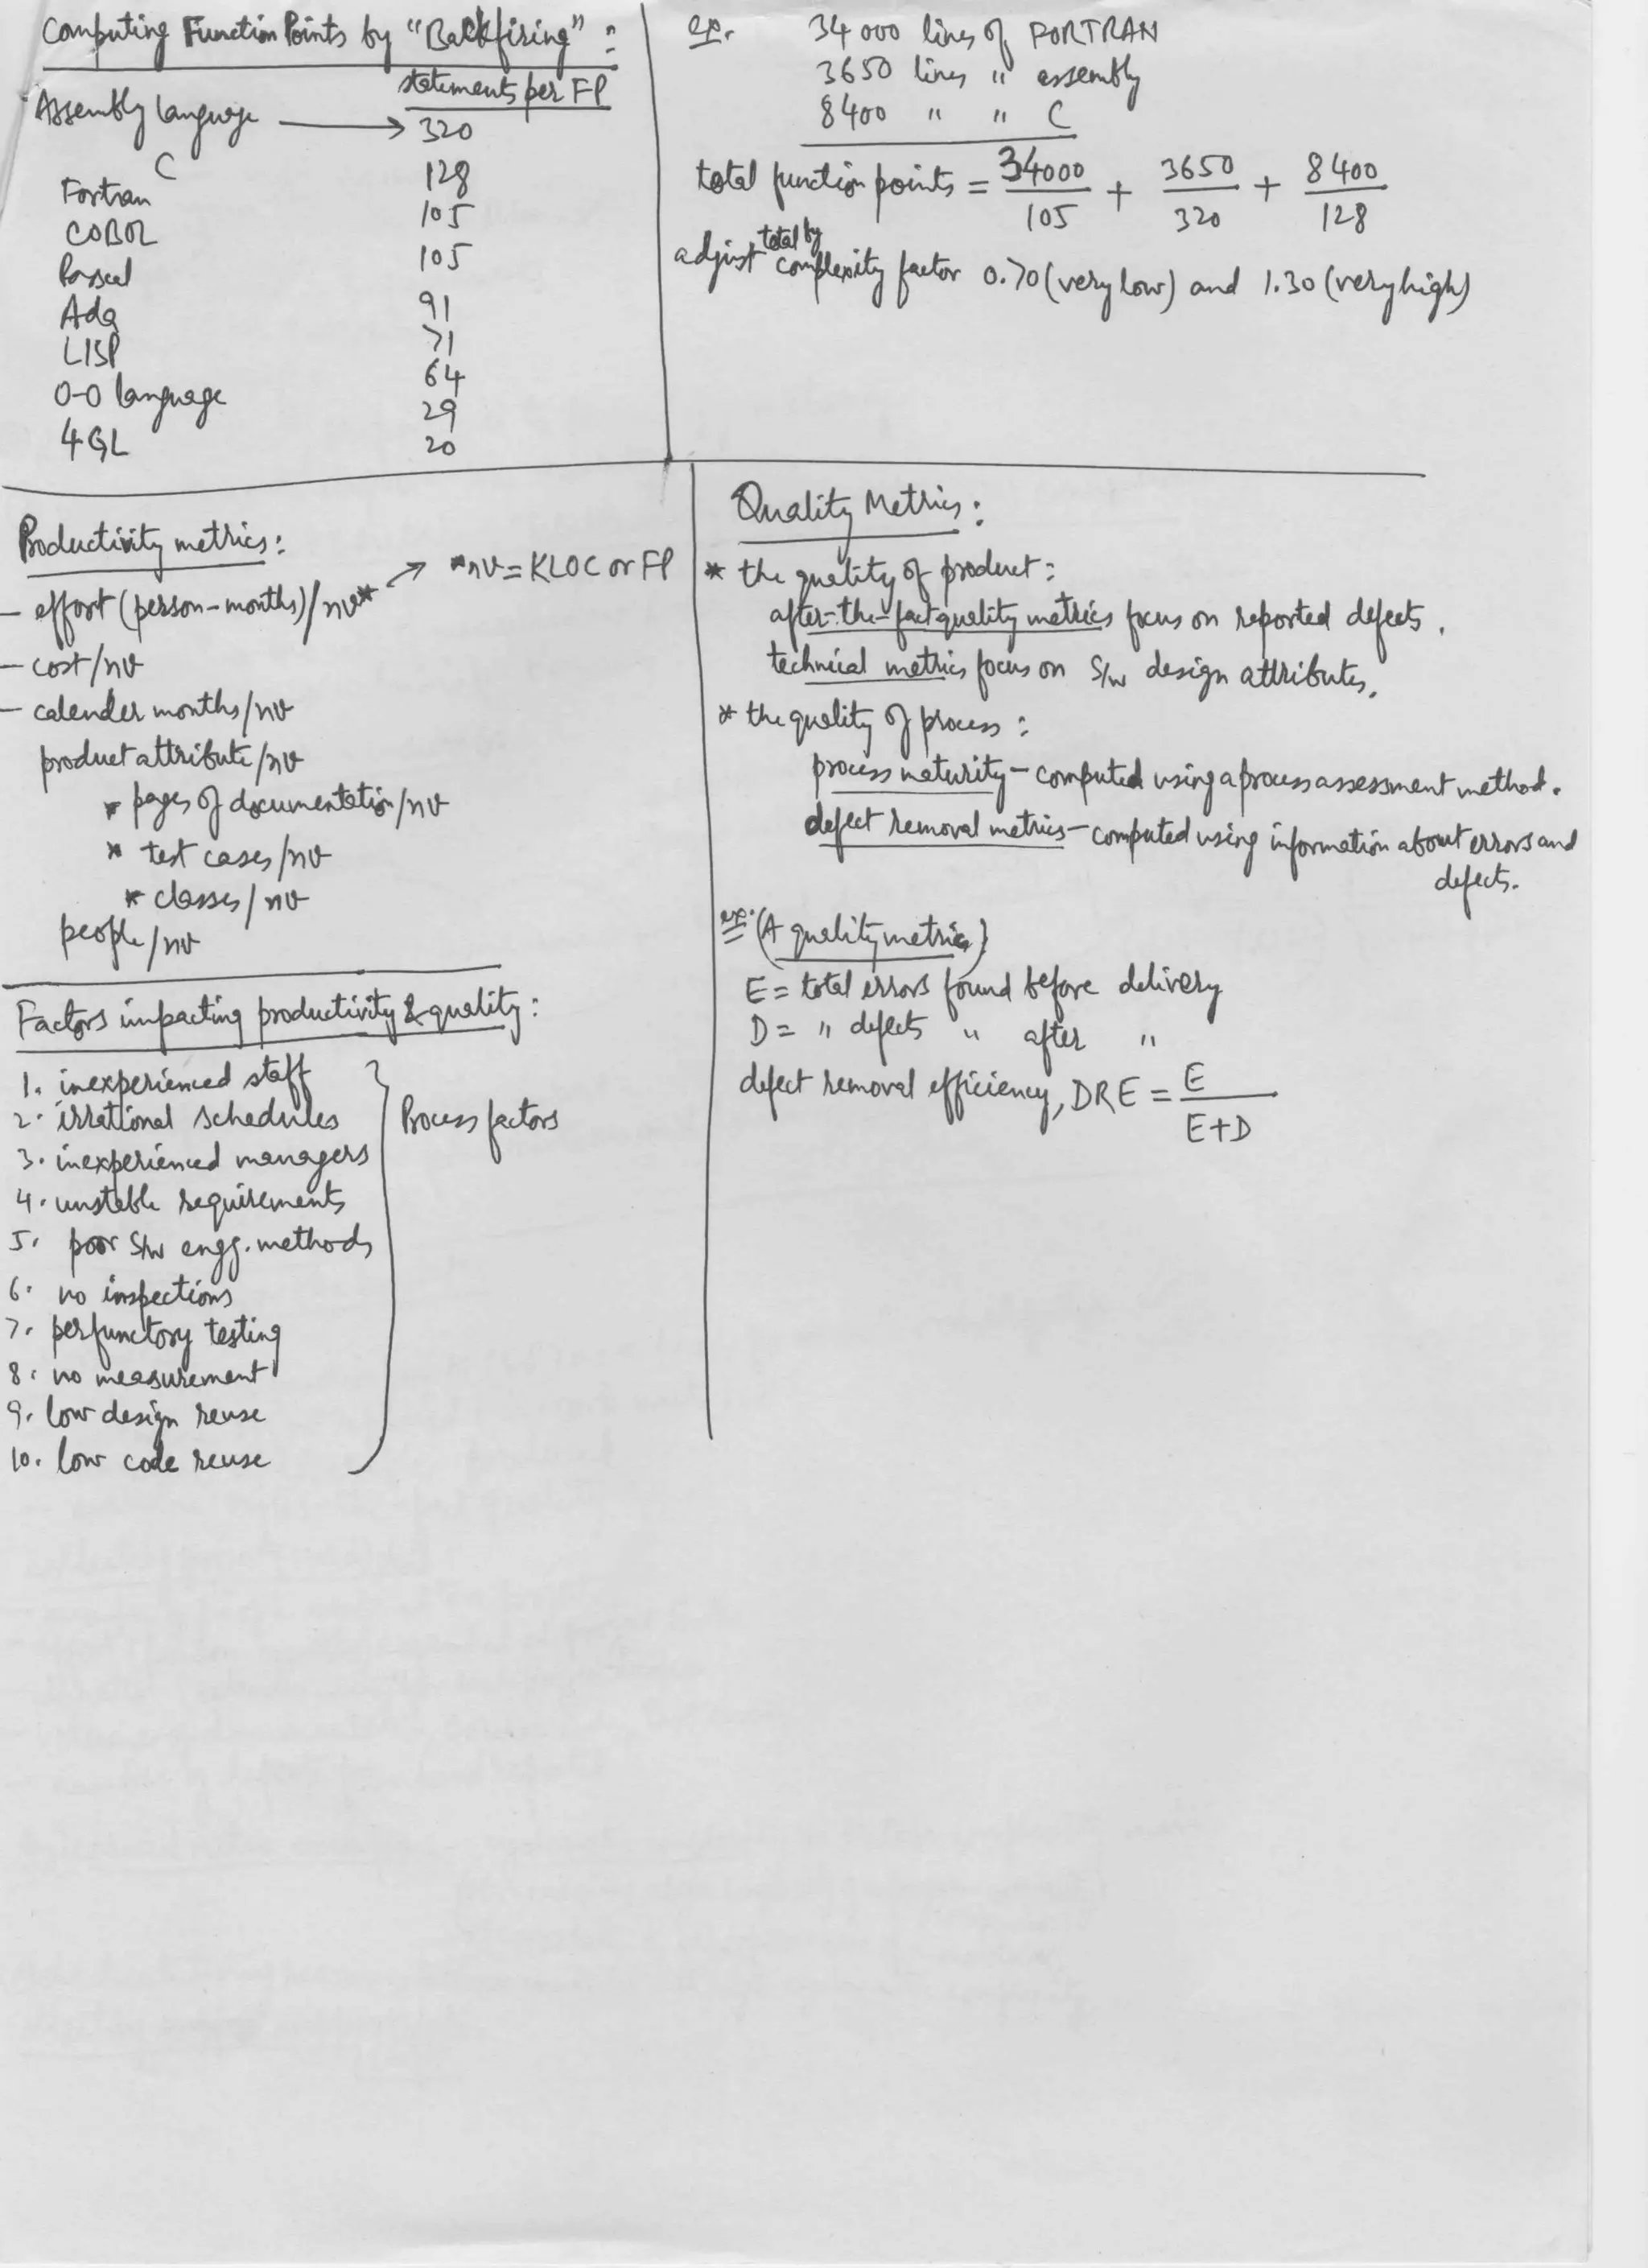 Computing Function Points by "Backfiring" :
statements per FP
Assembly language → 320
C 128
Fortran 105
COBOL 105
Pascal 91
Ada 71
LISP 64
O-O language 29
4GL 20
ex. 34000 lines of FORTRAN
3650 lines " assembly
8400 " " C
total function points = 34000/105 + 3650/320 + 8400/128
adjust total by complexity factor 0.70 (very low) and 1.30 (very high)
Productivity metrics:
- effort (person-months)/nv* → *nv = KLOC or FP
- cost/nv
- calender months/nv
product attribute/nv
* pages of documentation/nv
* test cases/nv
* classes/nv
people/nv
Factors impacting productivity & quality:
1. inexperienced staff
2. irrational schedules
3. inexperienced managers
4. unstable requirements
5. poor S/w engg. methods
6. no inspections
7. perfunctory testing
8. no measurement
9. low design reuse
10. low code reuse
Process factors
Quality Metrics:
* the quality of product:
after-the-fact quality metrics focus on reported defects.
technical metrics focus on S/w design attributes.
* the quality of process:
process maturity - computed using a process assessment method.
defect removal metrics - computed using information about errors and
defects.
ex: (A quality metric)
E = total errors found before delivery
D = " defects " after "
defect removal efficiency, DRE = E/E+D